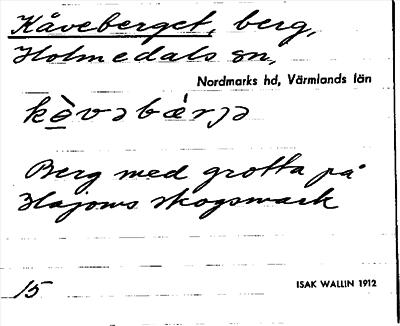 Kåveberget, berg,
Holmedals sn,
Nordmarks hd, Värmlands län
kò̲vəbǽrɟə
Berg med grotta på
Hajoms skogsmark
15 ISAK WALLIN 1912